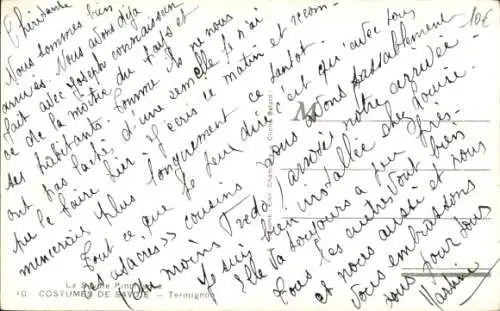 Chérissante
Nous sommes bien
arrivés. Nous avons déjà
fait avec Joseph connaissance
de la moitié du pays et
ses habitants. Comme ils ne nous
ont pas lâché d'une semelle je n'ai
pu le faire hier. J'écris ce matin et recom-
mencerai plus longuement ce tantôt.
Tout ce que je peux dire c'est qu'avec tous
ces cousins nous avons passablement
(du moins Fredo) arrosé notre arrivée.
Je suis bien installée chez Louise.
Elle va toujours à peu près.
Tous les autres vont bien
et nous aussi et nous
vous embrassons
tous pour tous
10€
La Savoie
10. COSTUMES DE SAVOIE - Termignon